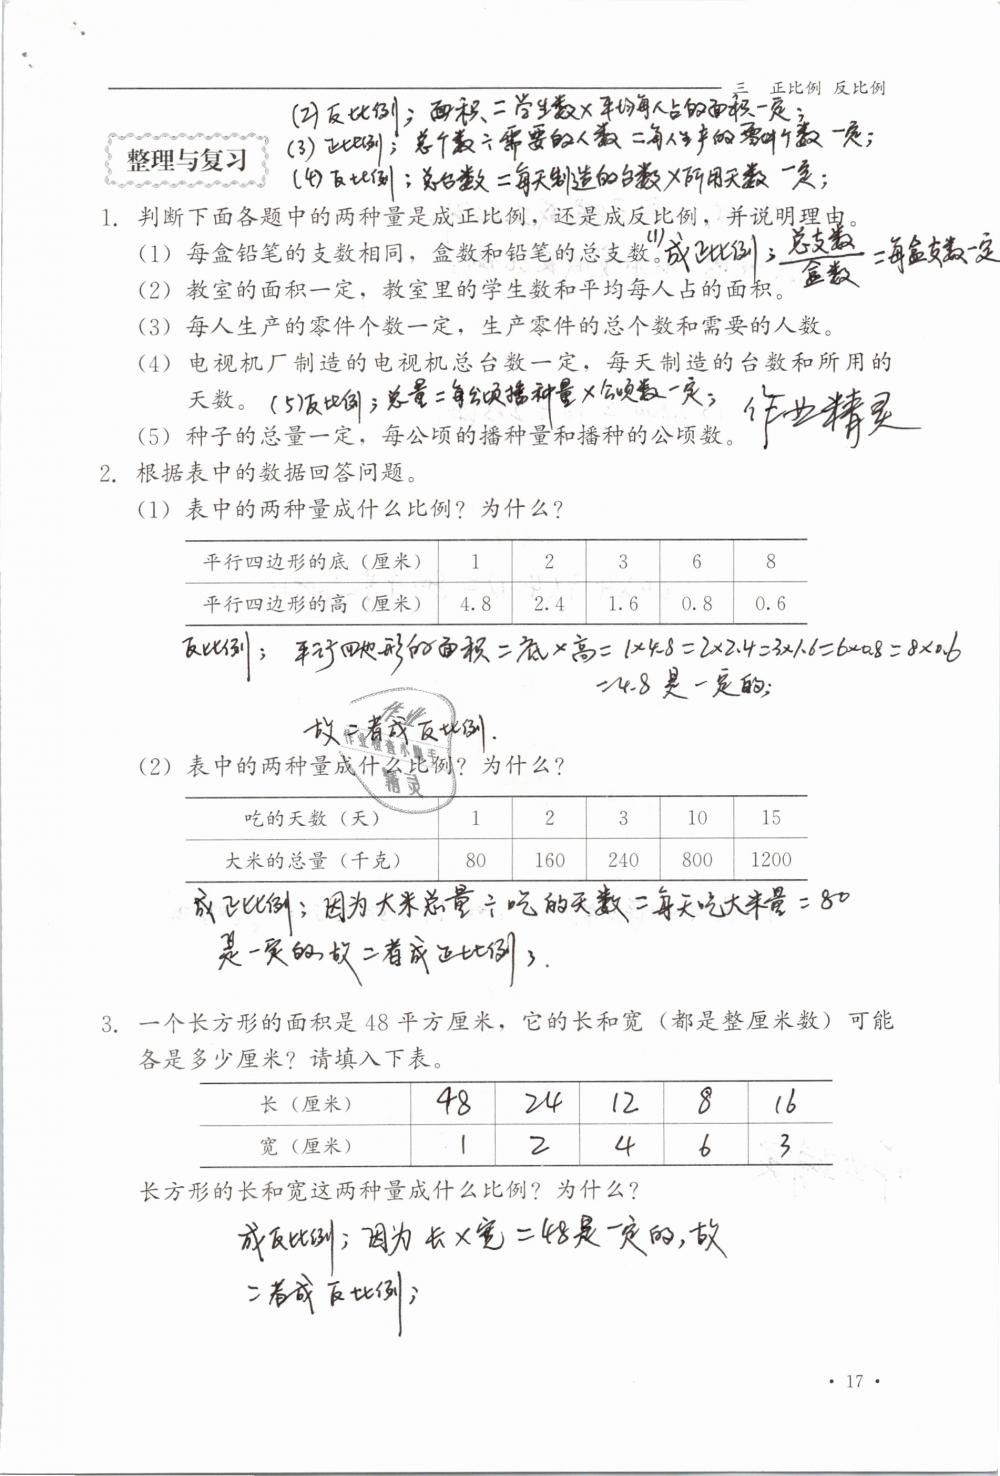 三 正比例 反比例
(2)反比例；面积=学生数×平均每人占的面积一定；
(3)正比例；总个数÷需要的人数=每人生产的零件个数一定；
(4)反比例；总台数=每天制造的台数×所用天数一定；
整理与复习
1. 判断下面各题中的两种量是成正比例，还是成反比例，并说明理由。
(1) 每盒铅笔的支数相同，盒数和铅笔的总支数。(1)成正比例；总支数/盒数=每盒支数一定
(2) 教室的面积一定，教室里的学生数和平均每人占的面积。
(3) 每人生产的零件个数一定，生产零件的总个数和需要的人数。
(4) 电视机厂制造的电视机总台数一定，每天制造的台数和所用的
天数。(5)反比例；总量=每公顷播种量×公顷数一定；
作业精灵
(5) 种子的总量一定，每公顷的播种量和播种的公顷数。
2. 根据表中的数据回答问题。
(1) 表中的两种量成什么比例？为什么？
平行四边形的底（厘米） 1 2 3 6 8
平行四边形的高（厘米） 4.8 2.4 1.6 0.8 0.6
反比例；平行四边形的面积=底×高=1×4.8=2×2.4=3×1.6=6×0.8=8×0.6
=4.8是一定的；
故二者成反比例.
作业
作业检查小助手
精灵
(2) 表中的两种量成什么比例？为什么？
吃的天数（天） 1 2 3 10 15
大米的总量（千克） 80 160 240 800 1200
成正比例；因为大米总量÷吃的天数=每天吃大米量=80
是一定的,故二者成正比例；.
3. 一个长方形的面积是 48 平方厘米，它的长和宽（都是整厘米数）可能
各是多少厘米？请填入下表。
长（厘米） 48 24 12 8 16
宽（厘米） 1 2 4 6 3
长方形的长和宽这两种量成什么比例？为什么？
成反比例；因为长×宽=48是一定的,故
二者成反比例；
· 17 ·